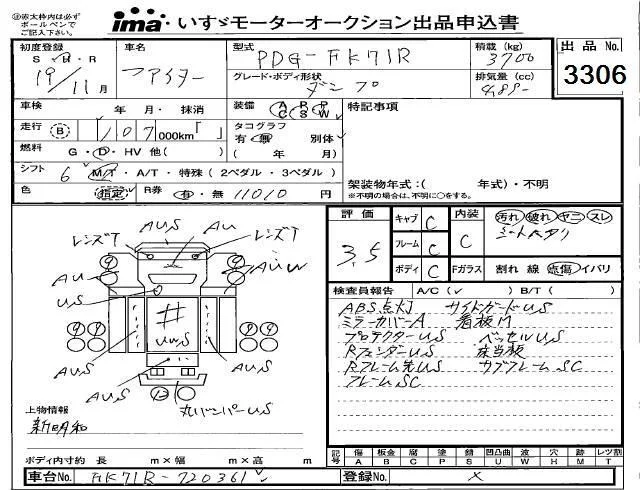 ㊟赤太枠内は必ず
ボールペンで
ご記入下さい。
ima いすゞモーターオークション出品申込書
初度登録 車名 型式 PDG-FK71R 積載(kg) 3700 出品No.
S・H・R 19/11月 ファイター グレード・ボディ形状 ダンプ 排気量(cc) 3306
車検 年 月・ 抹消 装備 A P P C S W 特記事項
走行 B 107 000km「 」 タコグラフ 有 無 別体
燃料 G・D・HV 他( ) ( 年 月)
シフト 6 M/T・A/T・特殊(2ペダル・3ペダル) 架装物年式:( 年式)・不明
色 指定 R券 有・無 11010 円 ※不明の場合は、不明に○をする。
評価 3.5 キャブ C 内装 C 汚れ 破れ ヤニ スレ
フレーム C シートヘタリ
ボディ C Fガラス 割れ 線 点傷 イバリ
検査員報告 A/C(✓) B/T( )
ABS点灯 サイドガードUS
ミラーカバーA 看板M
プロテクターUS ベッセルUS
RフェンダーUS 床当板
Rフレーム先US サブフレームSC
フレームSC
AUS AU
レンズT レンズT
AU AUW
US
# UWS
AUS AUS
AUS AUS
丸バンパーUS
上物情報
新明和
ボディ内寸約 長 m×幅 m×高 m
記号 傷 板金 腐 塗 錆 凹凸曲 波 穴 跡 レツ割
A B C P S U W H M T
車台No. FK71R-720361 登録No. ×